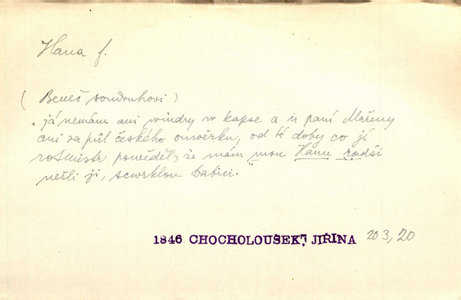 Hana f.
( Beneš soudruhovi )
já nemám ani windry w kapse a u paní Mařeny
ani za půl českého outěrku, od té doby co jí
rotmistr powěděl, že mám mou Hanu radši
nežli ji, scwrklou babici.
1846 CHOCHOLOUŠEK, JIŘINA 203,20